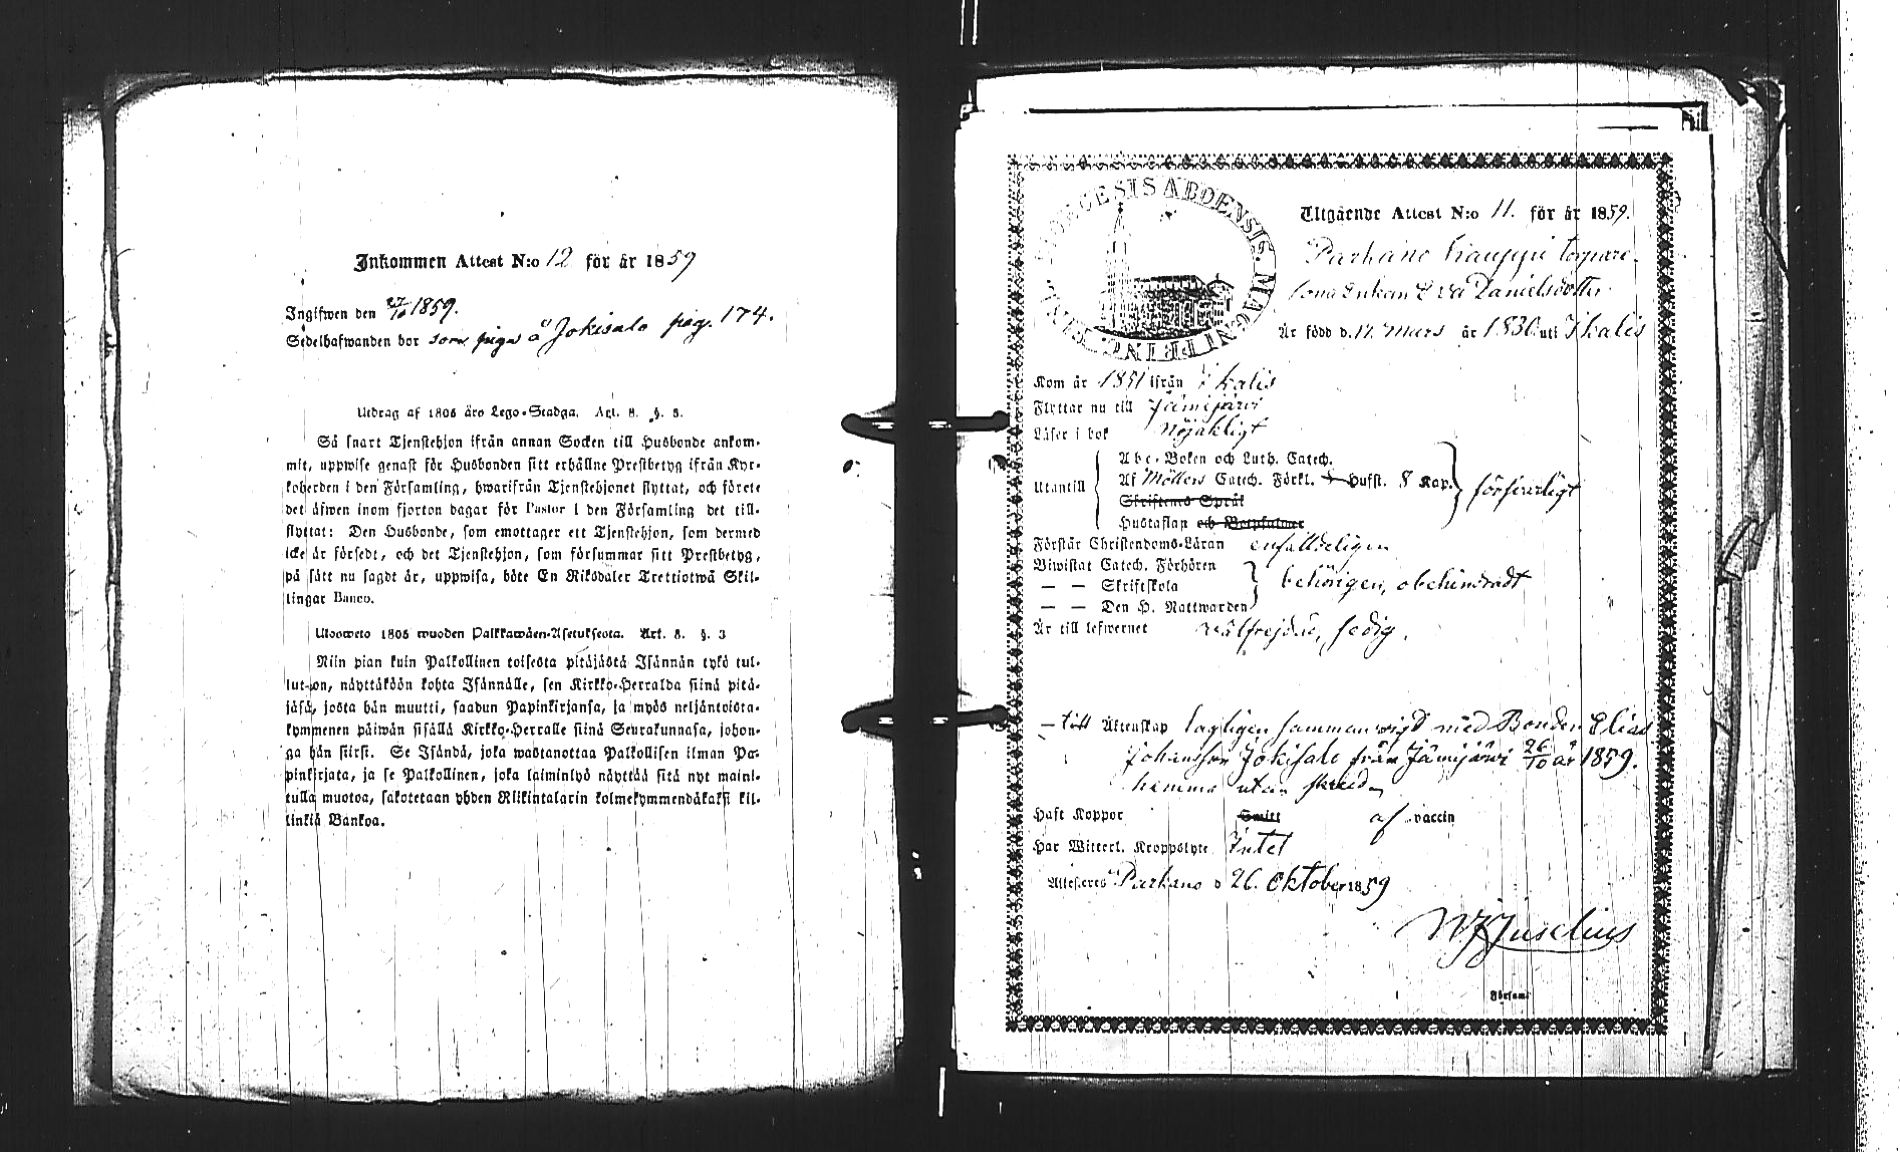 Inkommen Attest N:o 12 för år 1859
Ingifwen den 27/10 1859.
Sedelhafwanden bor som piga å Jokisalo pag. 174.
Utdrag af 1805 års Lego-Stadga. Art. 8. §. 3.
Så snart Tjenstehjon ifrån annan Socken till Husbonde ankom-
mit, uppwise genast för Husbonden sitt erhållne Prestbetyg ifrån Kyr-
koherden i den Församling, hwarifrån Tjenstehjonet flyttat, och förete
det äfwen inom fjorton dagar för Pastor i den Församling det till-
flyttat: Den Husbonde, som emottager ett Tjenstehjon, som dermed
icke är försedt, och det Tjenstehjon, som försummar sitt Prestbetyg,
på sätt nu sagdt är, uppwisa, böte En Riksdaler Trettiotwå Skil-
lingar Banco.
Ulosweto 1805 wuoden Palkkawäen-Asetuksesta. Art. 8. §. 3
Niin pian kuin Palkollinen toisesta pitäjästä Isännän tykö tul-
lut on, näyttäköön kohta Isännälle, sen Kirkko-Herralda siinä pitä-
jäsä, josta hän muutti, saadun Papinkirjansa, ja myös neljäntoista-
kymmenen päiwän sisällä Kirkko-Herralle siinä Seurakunnasa, johon-
ga hän siirsi. Se Isändä, joka wastanottaa Palkollisen ilman Pa-
pinkirjata, ja se Palkollinen, joka laiminlyö näyttää sitä nyt maini-
tulla muotoa, sakotetaan yhden Riikintalarin kolmekymmendäkaksi kil-
linkiä Bankoa.
DIOECESIS ABOENSIS. MAGNI PRINC. FINL.
Utgående Attest N:o 11. för år 1859.
Parkano Kauppi torpare
sona Enkan Eva Danielsdotter
Är född d. 17. Mars år 1830 uti Ikalis
Kom år 1851 ifrån Ikalis
Flyttar nu till Jämijärvi
Läser i bok Nöjaktigt
Utantill
Abc-Boken och Luth. Catech.
Af Möllers Catech. Förkl. Hufst. 8 Kap.
Skriftens Språk
Hustaflan och Botpsalmer
försvarligt
Förstår Christendoms-Läran enfaldeligen
Biwistat Catech. Förhören
— — Skriftskola
— — Den H. Nattwarden
behörigen, obehindradt
Är till lefwernet välfrejdad, ledig.
— till Äktenskap lagligen sammanvigd med Bonden Elias
Johansson Jokisalo från Jämijärvi 26/10 år 1859.
hemma utan
Haft Koppor Smitt af vaccin
Har Witterl. Kroppslyte Intet
Attesteras Parkano d 26. Oktober 1859
W J Juselius
Församl